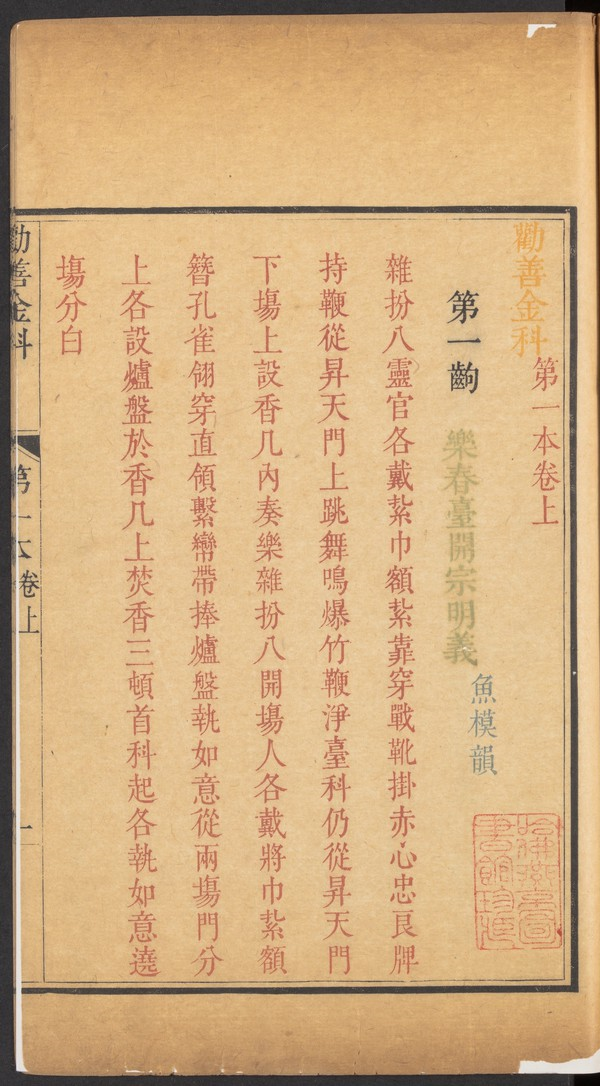 勸善金科
第一本卷上
第一齣 樂春臺開宗明義 魚模韻
雜扮八靈官各戴紮巾額紮靠穿戰靴掛赤心忠良牌
持鞭從昇天門上跳舞鳴爆竹鞭淨臺科仍從昇天門
下塲上設香几內奏樂雜扮八開塲人各戴將巾紮額
簪孔雀翎穿直領繫鸞帶捧爐盤執如意從兩塲門分
上各設爐盤於香几上焚香三頓首科起各執如意遶
塲分白
勸善金科
第一本卷上
一
哈佛燕京圖
書館珍藏